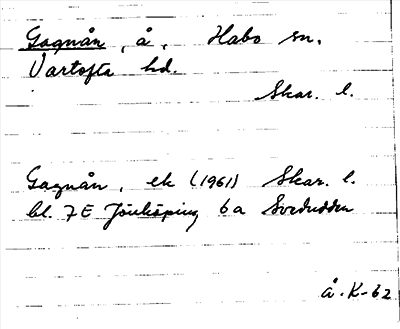 Gagnån, å, Habo sn.
Vartofta hd.
Skar. l.
Gagnån, ek (1961) Skar. l.
bl. 7E Jönköping 6a Svedudden
Å.K-62